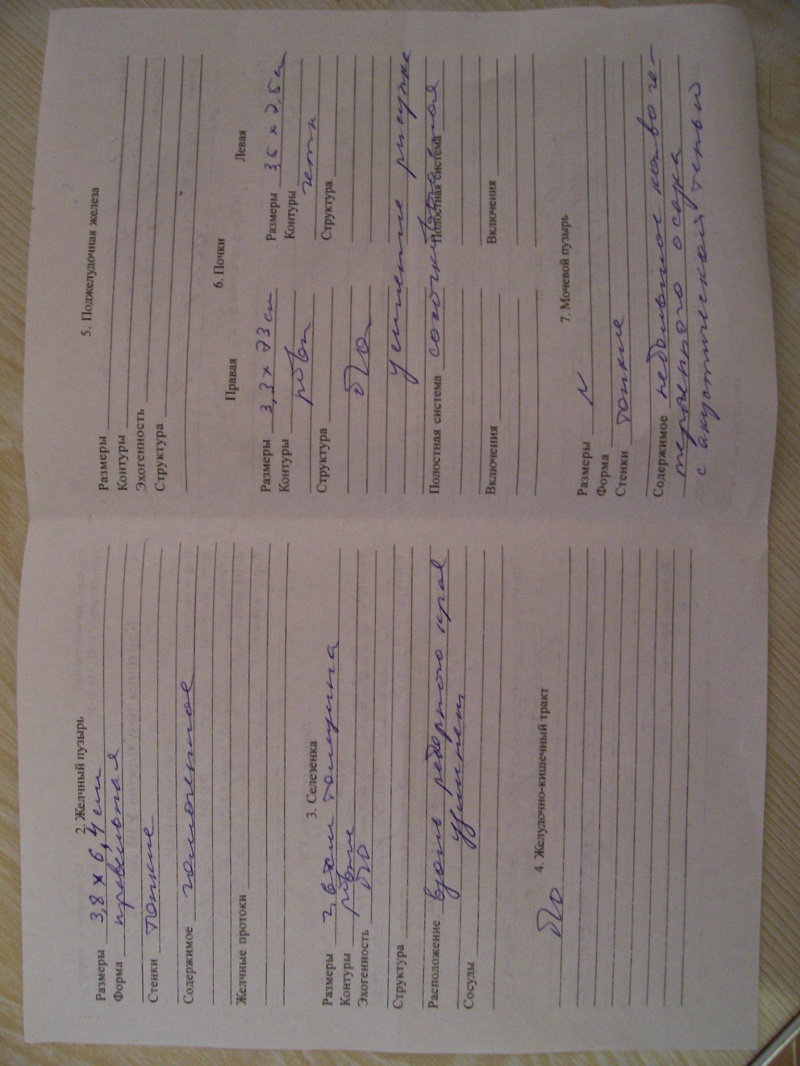 2. Желчный пузырь
Размеры 3,8 х 6,4 см
Форма правильная
Стенки тонкие
Содержимое гомогенное
Желчные протоки
3. Селезенка
Размеры толщина
Контуры ровные
Эхогенность б/о
Структура
Расположение вдоль реберного края
Сосуды
4. Желудочно-кишечный тракт
б/о
5. Поджелудочная железа
Размеры
Контуры
Эхогенность
Структура
6. Почки
Правая Левая
Размеры 3,3 х 7,3 см Размеры 3,5 х 7,5 см
Контуры ровн Контуры четк
Структура Структура
б/о
рисунка
Полостная система Полостная система
Включения Включения
7. Мочевой пузырь
Размеры N
Форма
Стенки тонкие
Содержимое небольшое кол-во ге-
осадка
с акустической тенью